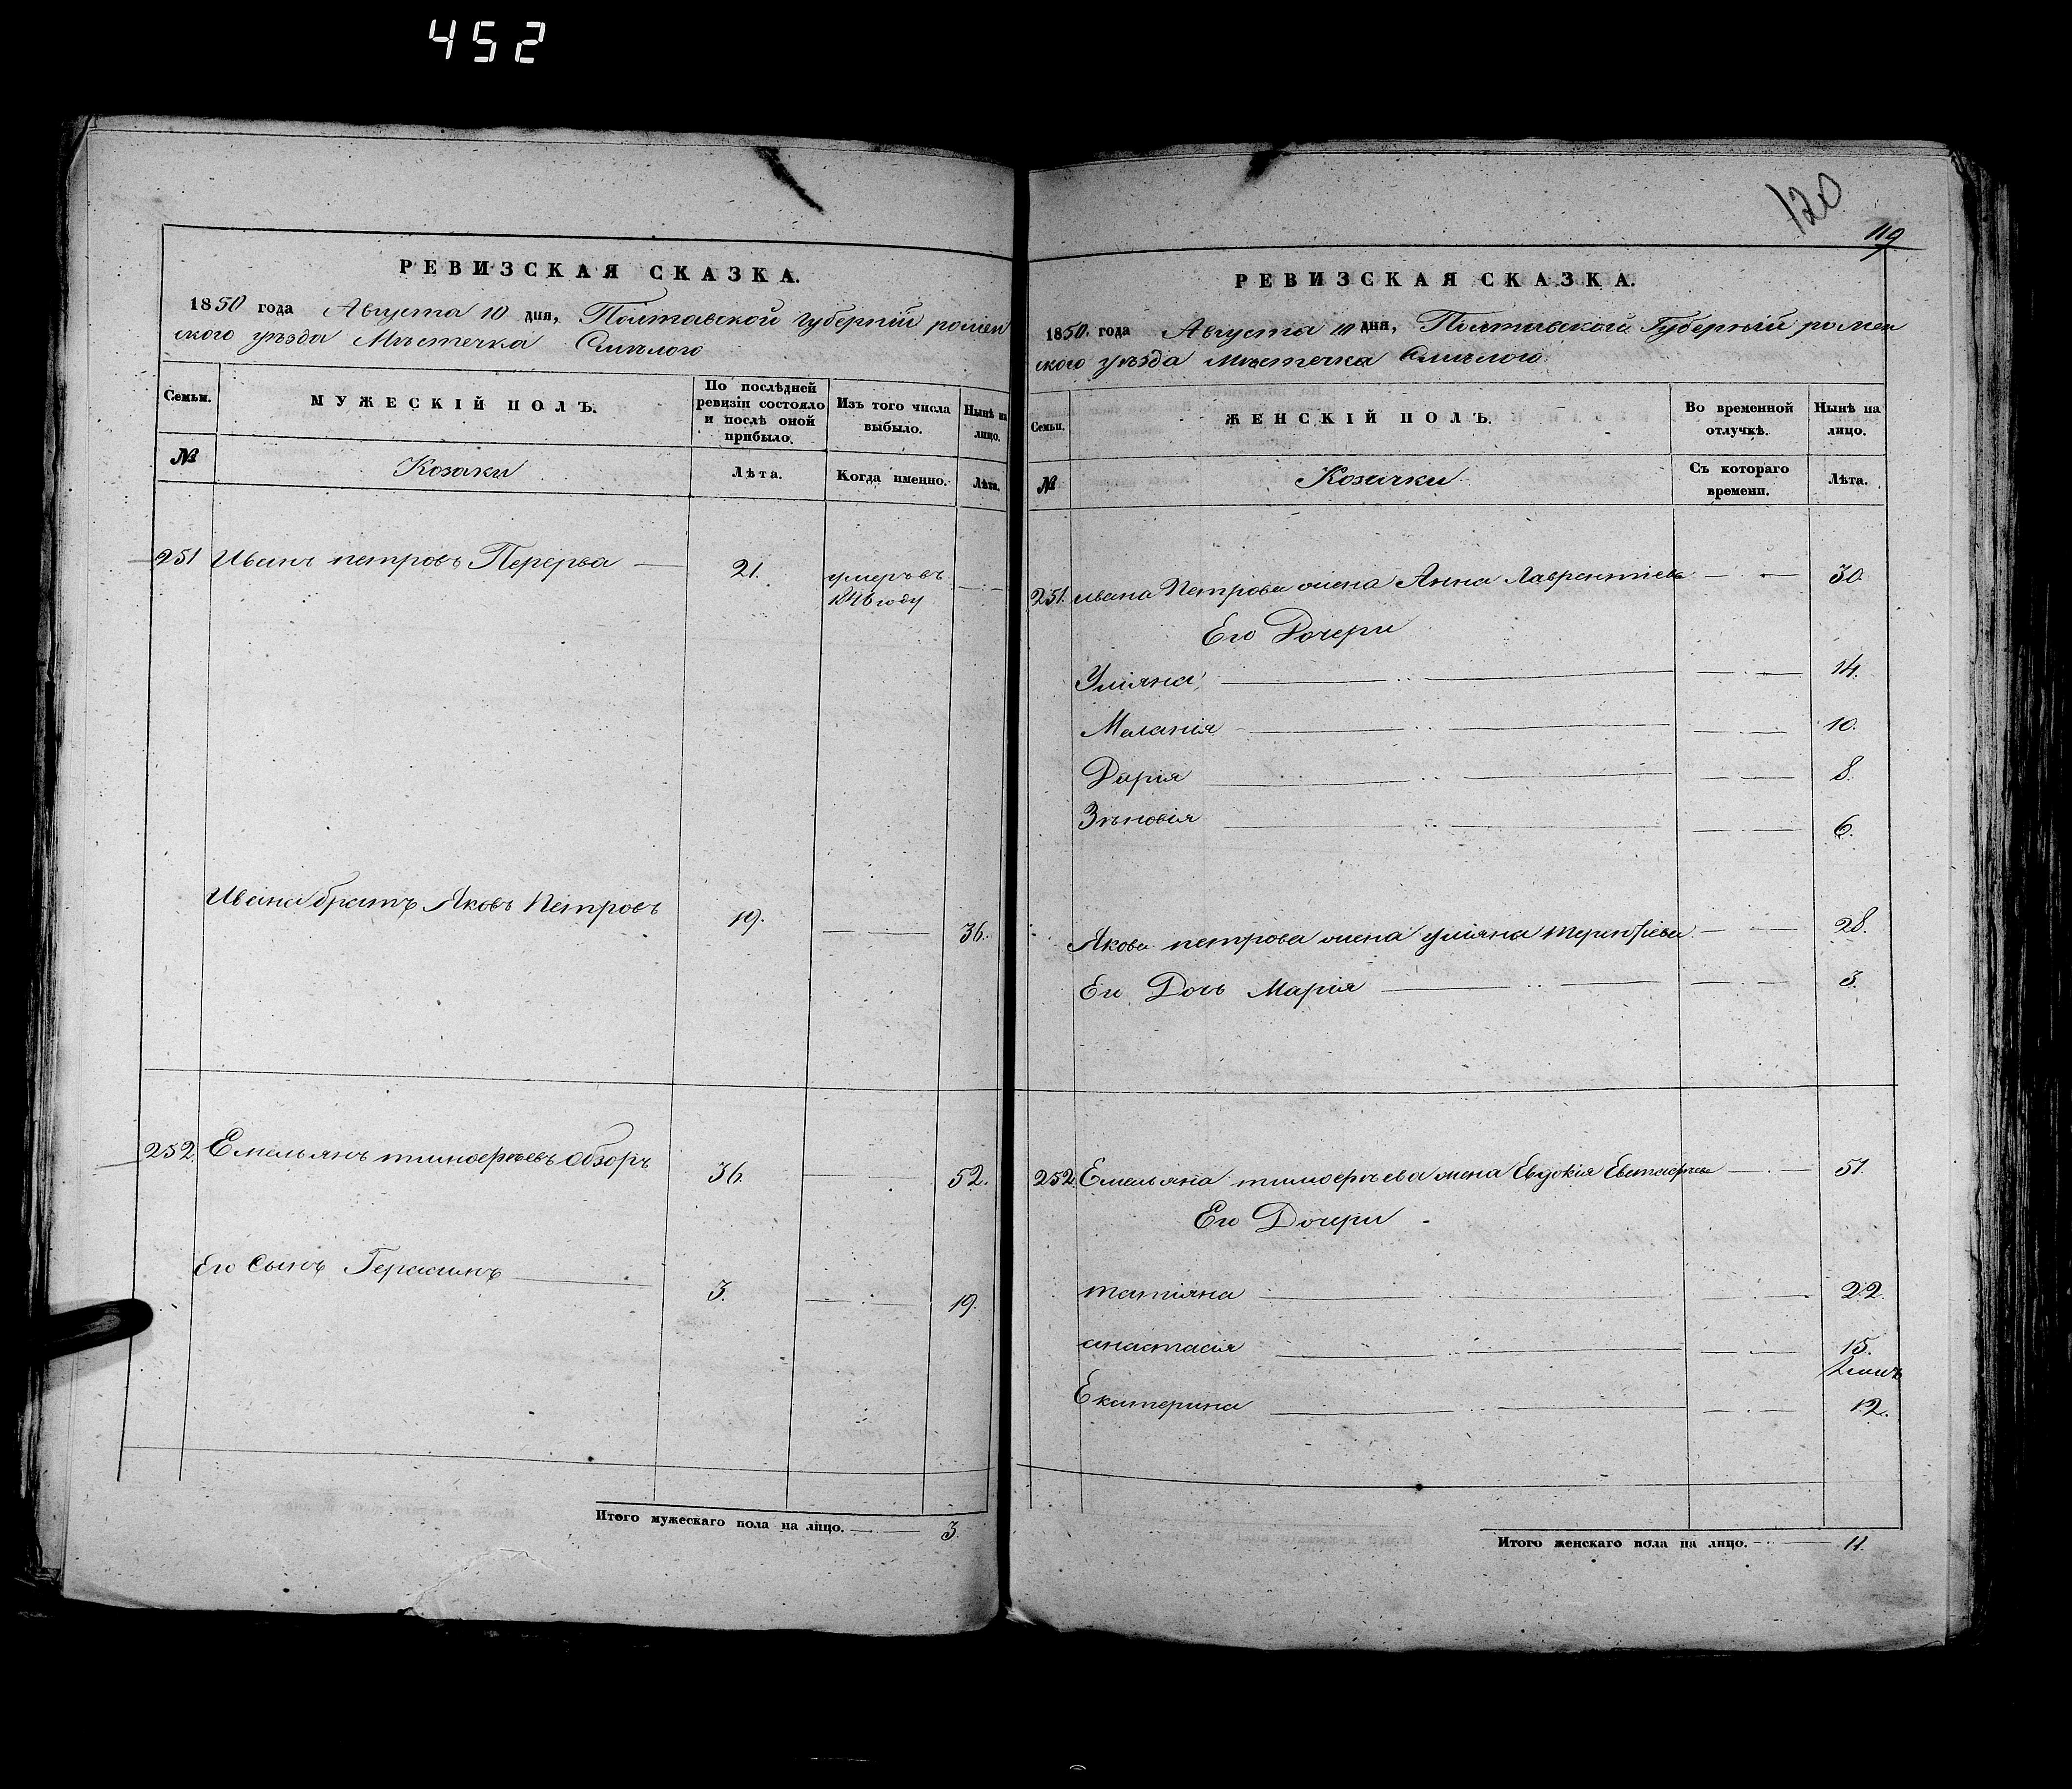 452
РЕВИЗСКАЯ СКАЗКА.
1850 года Августа 10 дня, Полтавской губерніи ромен
ского уѣзда Мѣстечка Смѣлого
Семьи.
МУЖЕСКІЙ ПОЛЪ.
По послѣдней ревизіи состояло и послѣ оной прибыло.
Изъ того числа выбыло.
Нынѣ на лицо.
№
Козаки
Лѣта.
Когда именно.
Лѣта.
251 Иванъ петровъ Перерва 21. умеръ въ
1846 году
Ивана братъ Яковъ Петровъ 19. 36.
252. Емельянъ тимофѣевъ Обзоръ 36. 52.
Его Сынъ Герасимъ 3. 19.
Итого мужескаго пола на лицо. 3.
120
119
РЕВИЗСКАЯ СКАЗКА.
1850. года Августа 10 дня, Полтавской Губерніи ромен
ского уѣзда Мѣстечка Смѣлого.
Семьи.
ЖЕНСКІЙ ПОЛЪ.
Во временной отлучкѣ.
Нынѣ на лицо.
№
Козачки.
Съ котораго времени.
Лѣта.
251. ивана Петрова жена Анна Лаврентіева 30.
Его Дочери
Уліяна 14.
Меланія 10.
Дарія 8.
Зѣновія 6.
Якова петрова жена уліяна терентіева 28.
Его Дочь Марія 3.
252. Емельяна тимофѣева жена Евдокія Евстафіева 51.
Его Дочери
татіяна 22.
анастасія 15.
Екатерина 12.
Итого женскаго пола на лицо. 11.